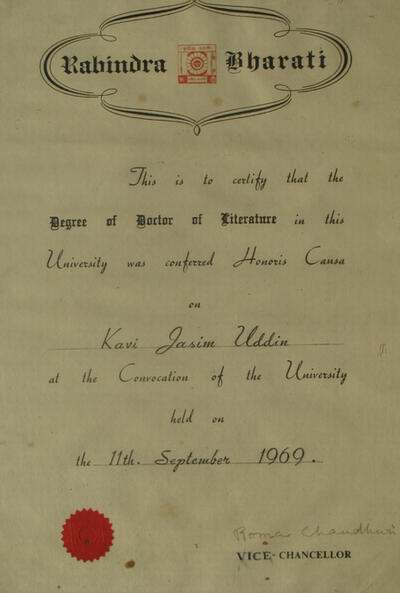 Rabindra Bharati
This is to certify that the
Degree of Doctor of Literature in this
University was conferred Honoris Causa
on
Kavi Jasim Uddin
at the Convocation of the University
held on
the 11th. September 1969.
Roma Chaudhuri
VICE-CHANCELLOR